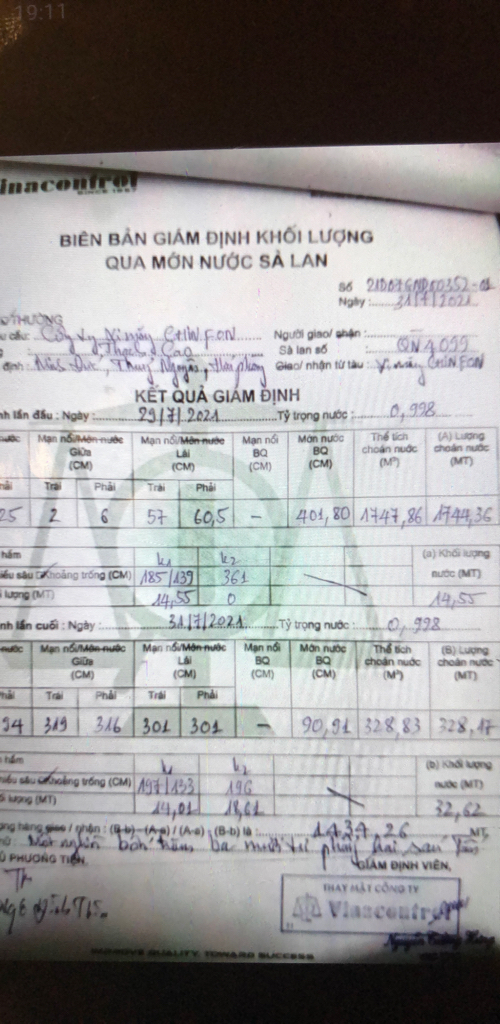 19:11
inacontrol
SINCE 1957
BIÊN BẢN GIÁM ĐỊNH KHỐI LƯỢNG
QUA MỚN NƯỚC SÀ LAN
Số 21D07GND00352-01
Ngày: 31/7/2021
THƯƠNG
u cầu: Công ty Xi măng CHINFON Người giao/ nhận:
Sà lan số QN4099
định: Ninh Đức, Thủy Nguyên, Hải phòng Giao/ nhận từ tàu Xi măng CHINFON
KẾT QUẢ GIÁM ĐỊNH
nh lần đầu: Ngày: 29/7/2021 Tỷ trọng nước: 0,998
nước Mạn nổi/Mớn nước Giữa (CM) Mạn nổi/Mớn nước Lái (CM) Mạn nổi BQ (CM) Mớn nước BQ (CM) Thể tích choán nước (M³) (A) Lượng choán nước (MT)
hải Trái Phải Trái Phải
25 2 6 57 60,5 - 401,80 1747,86 1744,36
hầm k1 k2 (a) Khối
iều sâu Khoảng trống (CM) 185/139 361 nước (MT)
lượng (MT) 14,55 0 14,55
nh lần cuối: Ngày: 31/7/2021 Tỷ trọng nước: 0,998
nước Mạn nổi/Mớn nước Giữa (CM) Mạn nổi/Mớn nước Lái (CM) Mạn nổi BQ (CM) Mớn nước BQ (CM) Thể tích choán nước (M³) (B) Lượng choán nước (MT)
hải Trái Phải Trái Phải
94 319 316 301 301 - 90,91 328,83 328,17
hầm k1 k2 (b) Khối lượng
iều sâu Khoảng trống (CM) 197/133 196 nước (MT)
ối lượng (MT) 14,01 18,61 32,62
ợng hàng giao / nhận: (B-b) - (A-a) / (A-a) - (B-b) là: 1434,26 MT
Một nghìn bốn trăm ba mươi tư phẩy hai sáu tấn
Ủ PHƯƠNG TIỆN, GIÁM ĐỊNH VIÊN,
THAY MẶT CÔNG TY
Vinacontrol
IMPROVE QUALITY, TOWARD SUCCESS